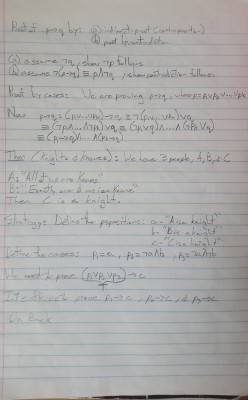 Proof of p→q by: (a) indirect proof (contrapositive)
(b) proof by contradiction
(a) assume ¬q, show ¬p follows
(b) assume ¬(p→q) ≡ p∧¬q, show contradiction follows.
Proof by cases: We are proving p→q, where p≡p₁∨p₂∨...∨pₖ
Now p→q ≡ (p₁∨...∨pₖ)→q ≡ ¬(p₁∨...∨pₖ)∨q
≡ (¬p₁∧...∧¬pₖ)∨q ≡ (¬p₁∨q)∧...∧(¬pₖ∨q)
≡ (p₁→q)∧...∧(pₖ→q)
(Knights & Knaves): We have 3 people, A, B, & C
A: "All of us are Knaves"
B: "Exactly one of us is a Knave"
Then C is a knight.
Strategy: Define the propositions: a= "A is a knight"
b= "B is a knight"
c= "C is a knight"
Define the cases: p₁=a, p₂=¬a∧b, p₃=¬a∧¬b
We need to prove (p₁∨p₂∨p₃)→c
T
to prove p₁→c, p₂→c, & p₃→c
On Back